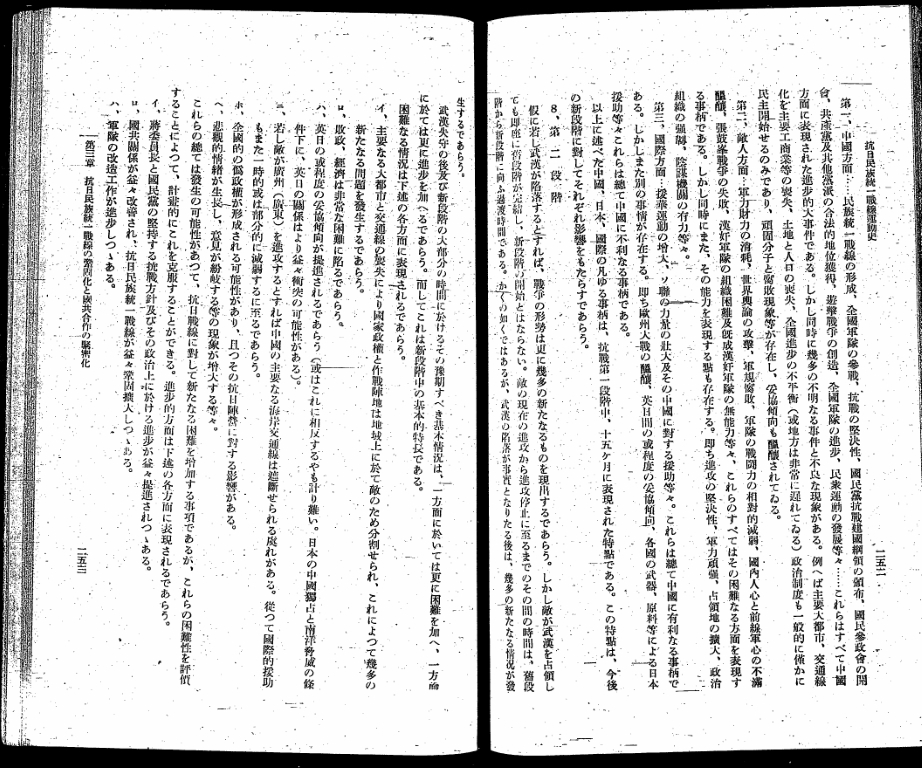 抗日民族統一戰線運動史
二五二
第一、中國方面……民族統一戰線の形成、全國軍隊の參戰、抗戰の堅決性、國民黨抗戰建國綱領の頒布、國民參政會の開
會、共產黨及其他黨派の合法的地位獲得、遊擊戰爭の創造、全國軍隊の進步、民衆運動の發展等々……これらはすべて中國
方面に表現された進步的大事件である。しかし同時に幾多の不明なる事件と不良な現象がある。例へば主要大都市、交通線
化を主要工商業等の喪失、土地と人口の喪失、全國進步の不平衡（或地方は非常に遲れてゐる）政治制度も一般的に僅かに
民主開始せるのみであり、頑固分子と腐敗現象等が存在し、妥協傾向も醞釀されてゐる。
第二、敵人方面…軍力財力の消耗、世界輿論の攻擊、軍規腐敗、軍隊の戰鬪力の相對的減弱、國內人心と前線軍心の不滿
醞釀、張鼓峯戰爭の失敗、漢奸軍隊の組織困難及旣成漢奸軍隊の無能力等々、これらのすべてはその困難なる方面を表現す
る事柄である。しかし同時にまた、その能力を表現する點も存在する。即ち進攻の堅決性、軍力頑强、占領地の擴大、政治
組織の强靱、陰謀機關の有力等々。
第三、國際方面…援華運動の增大、ソ聯の力量の壯大及その中國に對する援助等々。これらは總て中國に有利なる事柄で
ある。しかしまた別の事情が存在する。即ち歐州大戰の醞釀、英日間の或程度の妥協傾向、各國の武器、原料等による日本
援助等々これらは總て中國に不利なる事柄である。
以上に述べた中國、日本、國際の凡ゆる事柄は、抗戰第一段階中、十五ケ月に表現された特點である。この特點は、今後
の新段階に對してそれぞれ影響をもたらすであらう。
8、第二段階
假に若し武漢が陷落するとすれば、戰爭の形勢は更に幾多の新たなるものを現出するであらう。しかし敵が武漢を占領し
ても即座に舊段階が完結し、新段階の開始とはならない。敵の現在の進攻から進攻停止に至るまでのその間の時間は、舊段
階から新段階に向ふ過渡時間である。かくの如くではあるが、武漢の陷落が事實となりたる後は、幾多の新たなる情況が發
生するであらう。
武漢失守の後及び新段階の大部分の時間に於けるその豫期すべき基本情況は、一方面に於いては更に困難を加へ、一方面
に於ては更に進步を加へるであらう。而してこれは新段階中の基本的特長である。
困難なる情況は下述の各方面に表現されるであらう。
イ、主要なる大都市と交通線の喪失により國家政權と作戰陣地は地域上に於て敵のため分割せられ、これによつて幾多の
新たなる問題を發生するであらう。
ロ、財政、經濟は非常な困難に陷るであらう。
ハ、英日の或程度の妥協傾向が提進されるであらう（或はこれに相反するやも計り難い。日本の中國獨占と南洋脅威の條
件下に、英日の關係はより益々衝突の可能性がある）。
ニ、若し敵が廣州（廣東）を進攻するとすれば中國の主要なる海岸交通線は遮斷せられる虞れがある。從つて國際的援助
もまた一時的或は部分的に減弱するに至るであらう。
ホ、全國的の僞政權が形成される可能性があり、且つその抗日陣營に對する影響がある。
ヘ、悲觀的情緖が生長し、意見が紛岐する等の現象が增大する等々。
これらの總ては發生の可能性があつて、抗日戰線に對して新たなる困難を增加する事項であるが、これらの困難性を評價
することによつて、計畫的にこれを克服することができる。進步的方面は下述の各方面に表現されるであらう。
イ、蔣委員長と國民黨の堅持する抗戰方針及びその政治上に於ける進步が益々提進されつゝある。
ロ、國共關係が益々改善され、抗日民族統一戰線が益々鞏固擴大しつゝある。
ハ、軍隊の改造工作が進步しつゝある。
第三章 抗日民族統一戰線の鞏固化と國共合作の緊密化
二五三